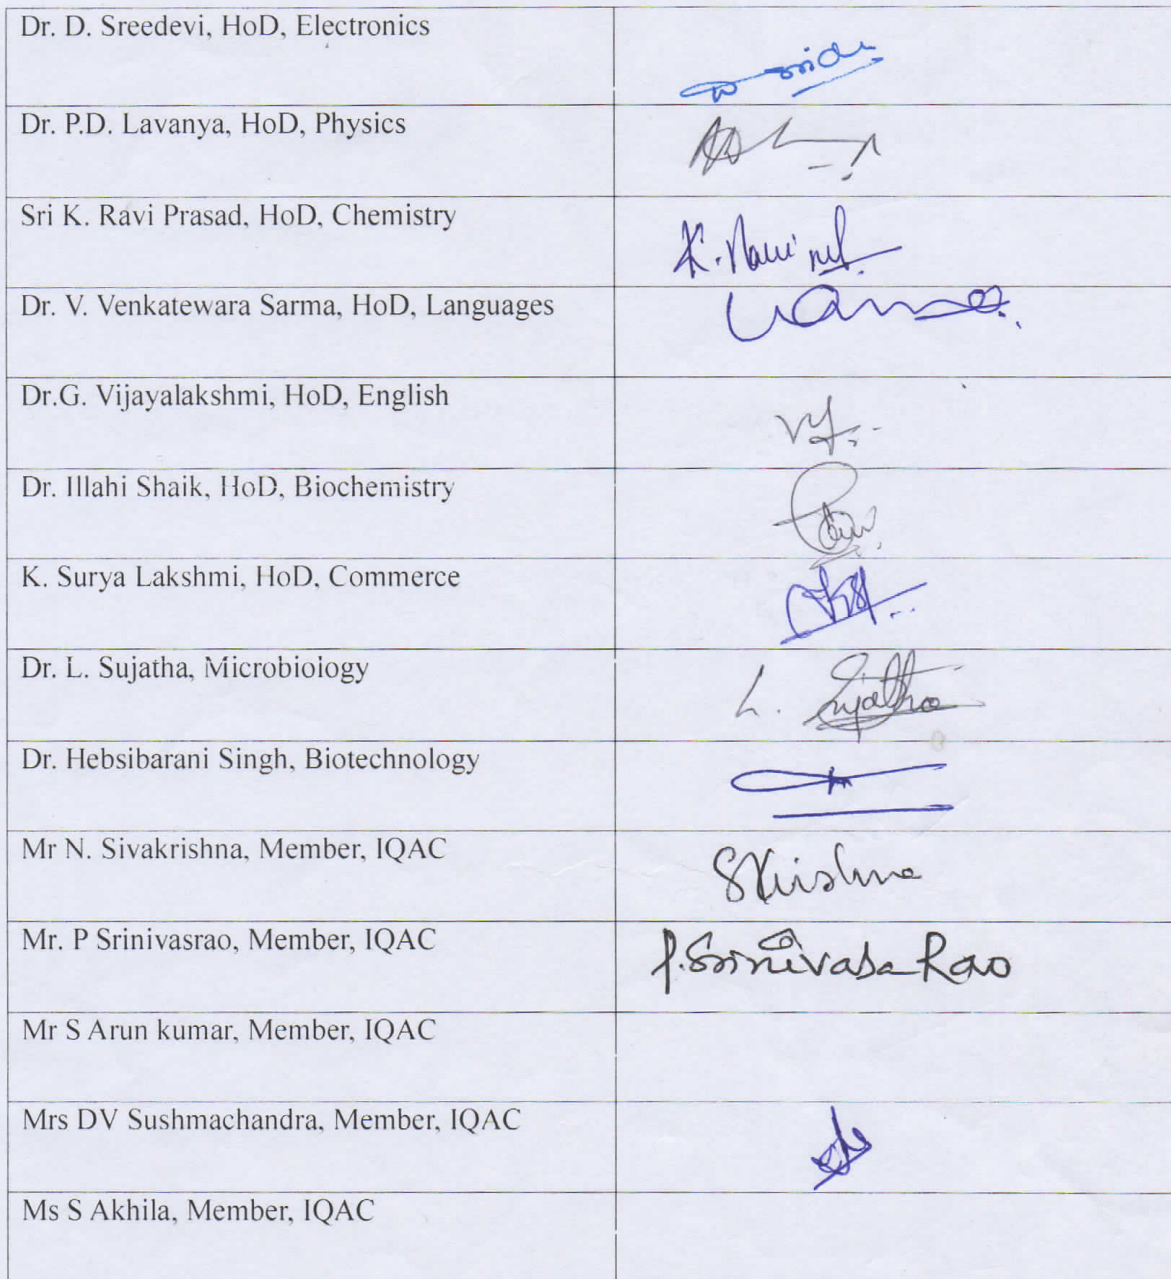 Dr. D. Sreedevi, HoD, Electronics
Dr. P.D. Lavanya, HoD, Physics
Sri K. Ravi Prasad, HoD, Chemistry
K. Ravi
Dr. V. Venkatewara Sarma, HoD, Languages
Dr.G. Vijayalakshmi, HoD, English
Dr. Illahi Shaik, HoD, Biochemistry
K. Surya Lakshmi, HoD, Commerce
Dr. L. Sujatha, Microbiology
L. Sujatha
Dr. Hebsibarani Singh, Biotechnology
Mr N. Sivakrishna, Member, IQAC
SKrishna
Mr. P Srinivasrao, Member, IQAC
P. Srinivasa Rao
Mr S Arun kumar, Member, IQAC
Mrs DV Sushmachandra, Member, IQAC
Ms S Akhila, Member, IQAC